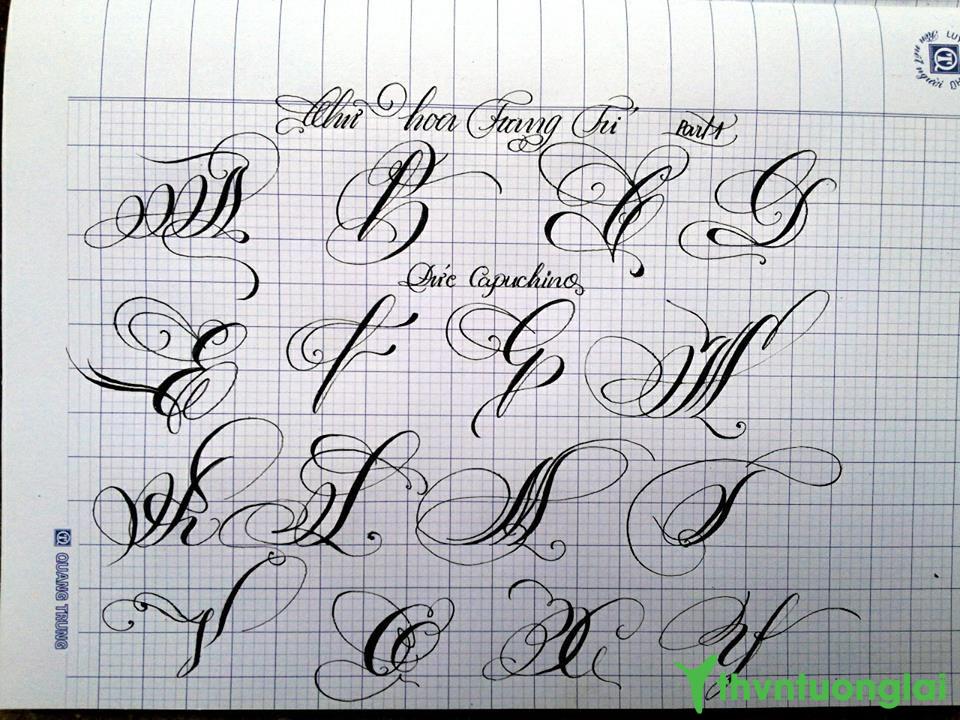 Chữ hoa Trang Trí Part 1
A B C D
Đức Capuchino
E F G H
K L M T
V O X Y
QUANG TRUNG
thvntuonglai